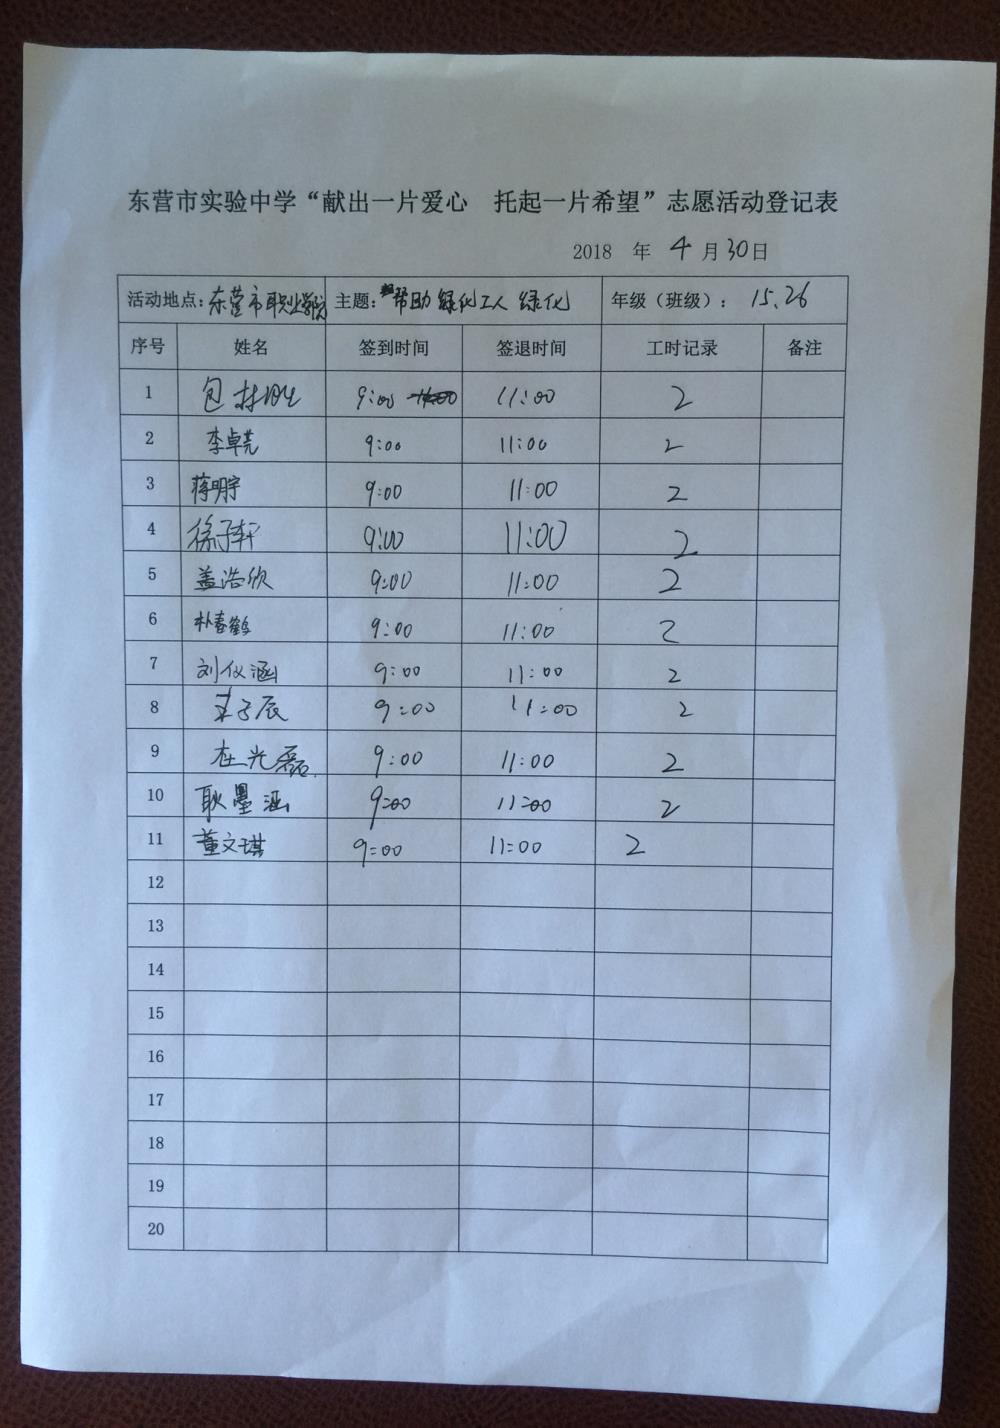 东营市实验中学“献出一片爱心 托起一片希望”志愿活动登记表
2018 年 4 月 30 日
活动地点：东营市职业学院 主题：帮助绿化工人 绿化 年级（班级）： 15、26
序号 姓名 签到时间 签退时间 工时记录 备注
1 包 9:00 11:00 2
2 李卓尧 9:00 11:00 2
3 蒋明宇 9:00 11:00 2
4 徐子轩 9:00 11:00 2
5 盖浩欣 9:00 11:00 2
6 朴春鹤 9:00 11:00 2
7 刘仪涵 9:00 11:00 2
8 子辰 9:00 11:00 2
9 光磊 9:00 11:00 2
10 耿墨涵 9:00 11:00 2
11 董文琪 9:00 11:00 2
12
13
14
15
16
17
18
19
20